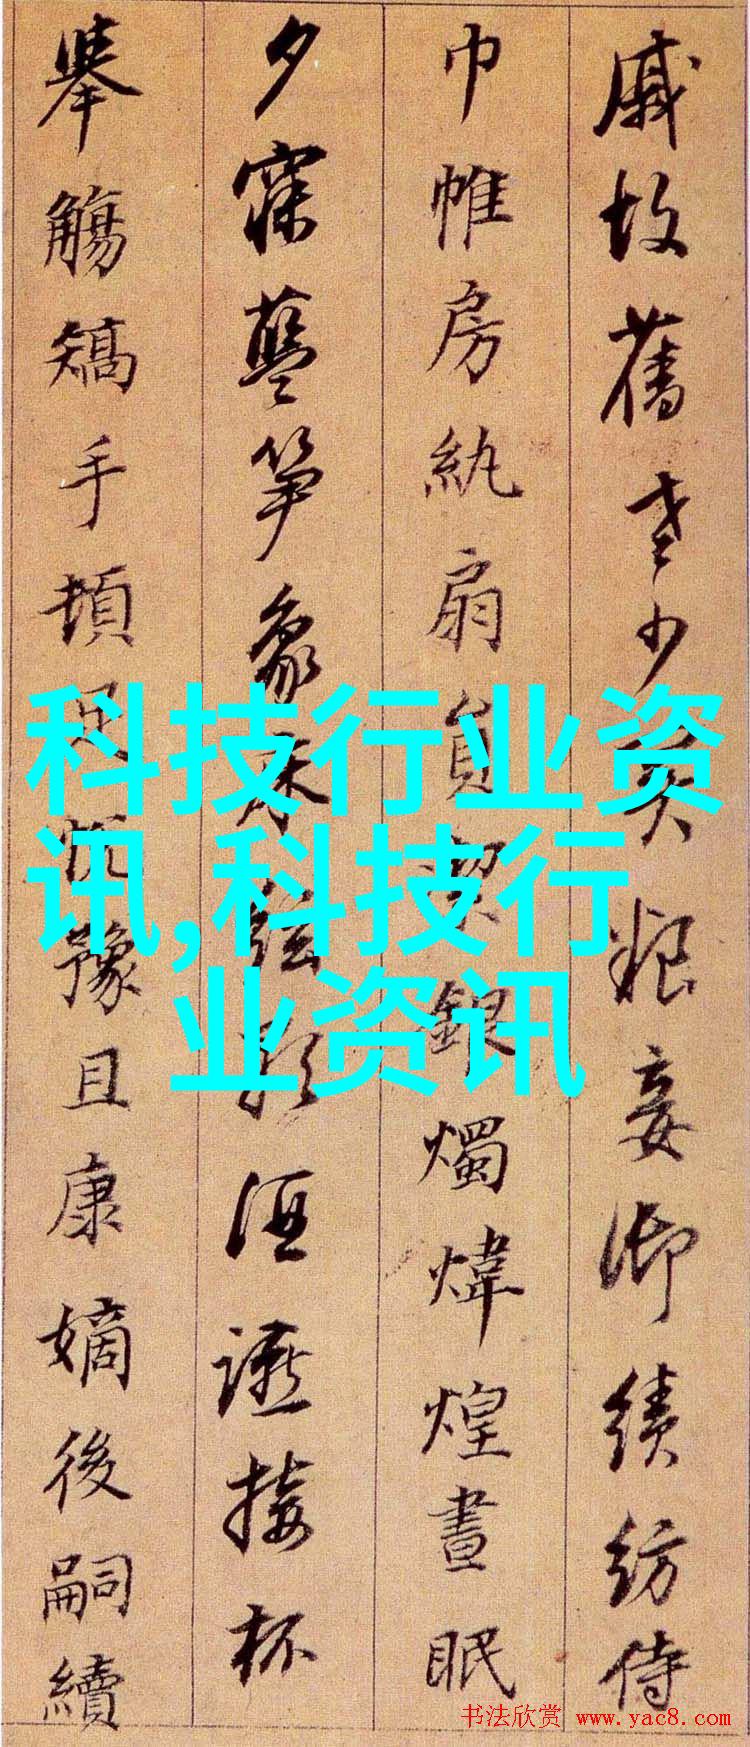 戚故舊老少異粮妾御績紡侍
巾帷房紈扇員潔銀燭煒煌晝眠
夕寐藍笋象床弦歌酒讌接杯
舉觴矯手頓足悅豫且康嫡後嗣續
科技行业资
讯,科技行
业资讯
书法欣赏 www.yac8.com